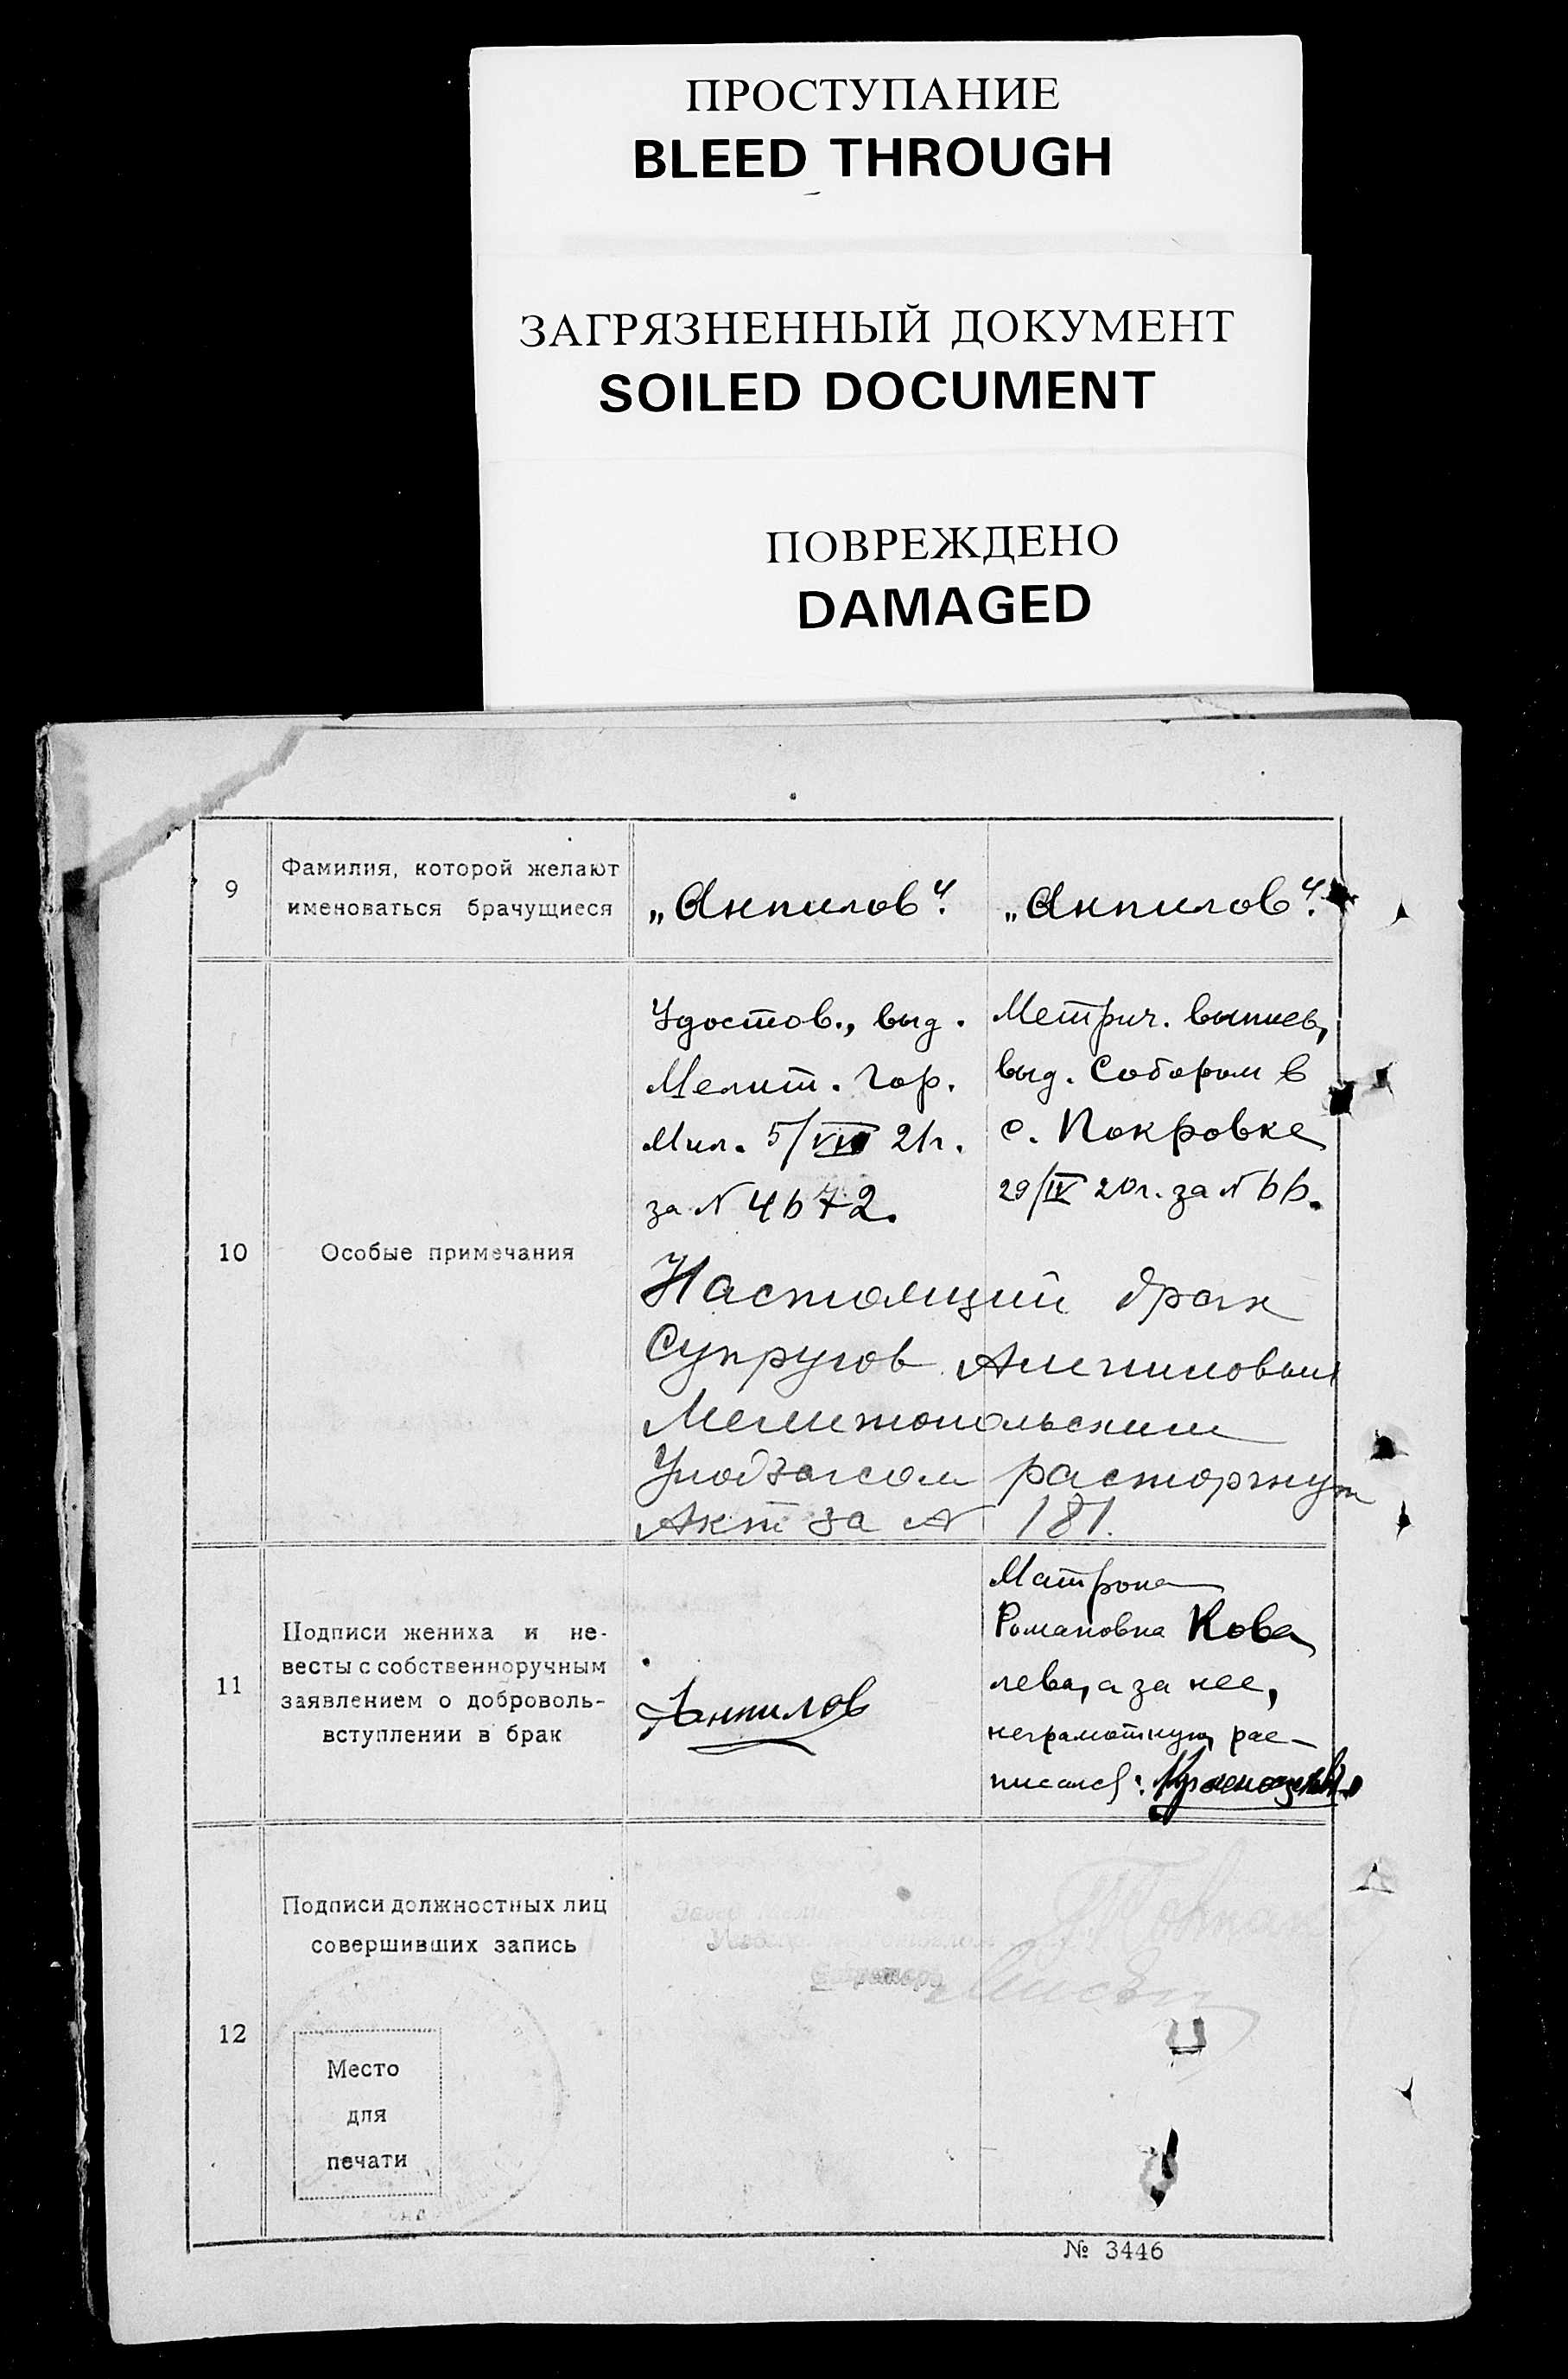 ПРОСТУПАНИЕ
BLEED THROUGH
ЗАГРЯЗНЕННЫЙ ДОКУМЕНТ
SOILED DOCUMENT
ПОВРЕЖДЕНО
DAMAGED
9
Фамилия, которой желают
именоваться брачущиеся
„Анпилов“.
„Анпилов“.
10
Особые примечания
Удостов., выд.
Мелит. Гор.
Мил. 5/VII 21г.
за № 4672.
Метрич. выпись,
выд. Собором в
с. Покровке
29/IV 20г. за № 66.
Настоящий брак
Супругов Анпиловых
Мелитопольским
Уподзагсом расторгнут
Акт за № 181.
11
Подписи жениха и не-
весты с собственноручным
заявлением о доброволь-
вступлении в брак
Анпилов
Матрона
Романовна Кова
лева, а за нее,
неграмотную, рас-
писался:
12
Подписи должностных лиц
совершивших запись
Место
для
печати
№ 3446